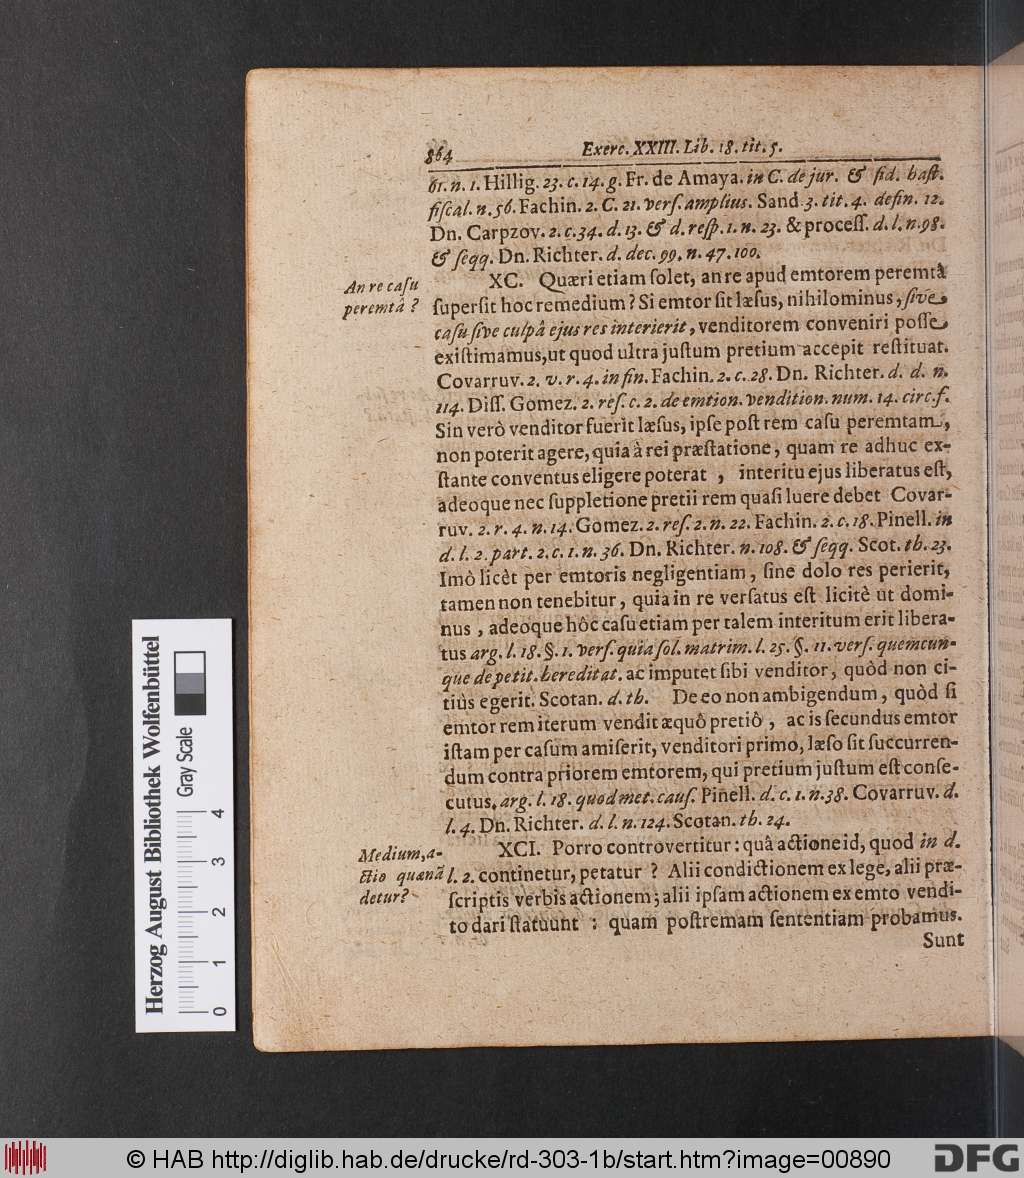 864
Exerc. XXIII. Lib. 18. tit. 5.
61. n. 1. Hillig. 23. c. 14. g. Fr. de Amaya. in C. de jur. & fid. haſt.
fiſcal. n. 56. Fachin. 2. C. 21. verſ. amplius. Sand 3. tit. 4. defin. 12.
Dn. Carpzov. 2. c. 34. d. 13. & d. reſp. 1. n. 23. & proceſſ. d. l. n. 98.
& ſeqq. Dn. Richter. d. dec. 99. n. 47. 100.
An re caſu
peremtâ ?
XC. Quæri etiam ſolet, an re apud emtorem peremtâ
ſuperſit hoc remedium ? Si emtor ſit læſus, nihilominus, ſive
caſu ſive culpâ ejus res interierit, venditorem conveniri poſſe
exiſtimamus, ut quod ultra juſtum pretium accepit reſtituat.
Covarruv. 2. v. r. 4. in fin. Fachin. 2. c. 28. Dn. Richter. d. d. n.
114. Diſſ. Gomez. 2. reſ. c. 2. de emtion. vendition. num. 14. circ. f.
Sin verò venditor fuerit læſus, ipſe poſt rem caſu peremtam,
non poterit agere, quia à rei præſtatione, quam re adhuc ex-
ſtante conventus eligere poterat , interitu ejus liberatus eſt,
adeoque nec ſuppletione pretii rem quaſi luere debet Covar-
ruv. 2. r. 4. n. 14. Gomez. 2. reſ. 2. n. 22. Fachin. 2. c. 18. Pinell. in
d. l. 2. part. 2. c. 1. n. 36. Dn. Richter. n. 108. & ſeqq. Scot. th. 23.
Imò licèt per emtoris negligentiam, ſine dolo res perierit,
tamen non tenebitur, quia in re verſatus eſt licitè ut domi-
nus , adeoque hôc caſu etiam per talem interitum erit libera-
tus arg. l. 18. §. 1. verſ. quia ſol. matrim. l. 25. §. 11. verſ. quemcun-
que de petit. hereditat. ac imputet ſibi venditor, quòd non ci-
tiùs egerit. Scotan. d. th. De eo non ambigendum, quòd ſi
emtor rem iterum vendit æquô pretiô , ac is ſecundus emtor
iſtam per caſum amiſerit, venditori primo, læſo ſit ſuccurren-
dum contra priorem emtorem, qui pretium juſtum eſt conſe-
cutus. arg. l. 18. quod met. cauſ. Pinell. d. c. 1. n. 38. Covarruv. d.
l. 4. Dn. Richter. d. l. n. 124. Scotan. th. 24.
Medium, a-
ctio quænã
detur?
XCI. Porro controvertitur : quâ actione id, quod in d.
l. 2. continetur, petatur ? Alii condictionem ex lege, alii præ-
ſcriptis verbis actionem; alii ipſam actionem ex emto vendi-
to dari ſtatuunt : quam poſtremam ſententiam probamus.
Sunt
Herzog August Bibliothek Wolfenbüttel
Gray Scale
0 1 2 3 4
© HAB http://diglib.hab.de/drucke/rd-303-1b/start.htm?image=00890
DFG